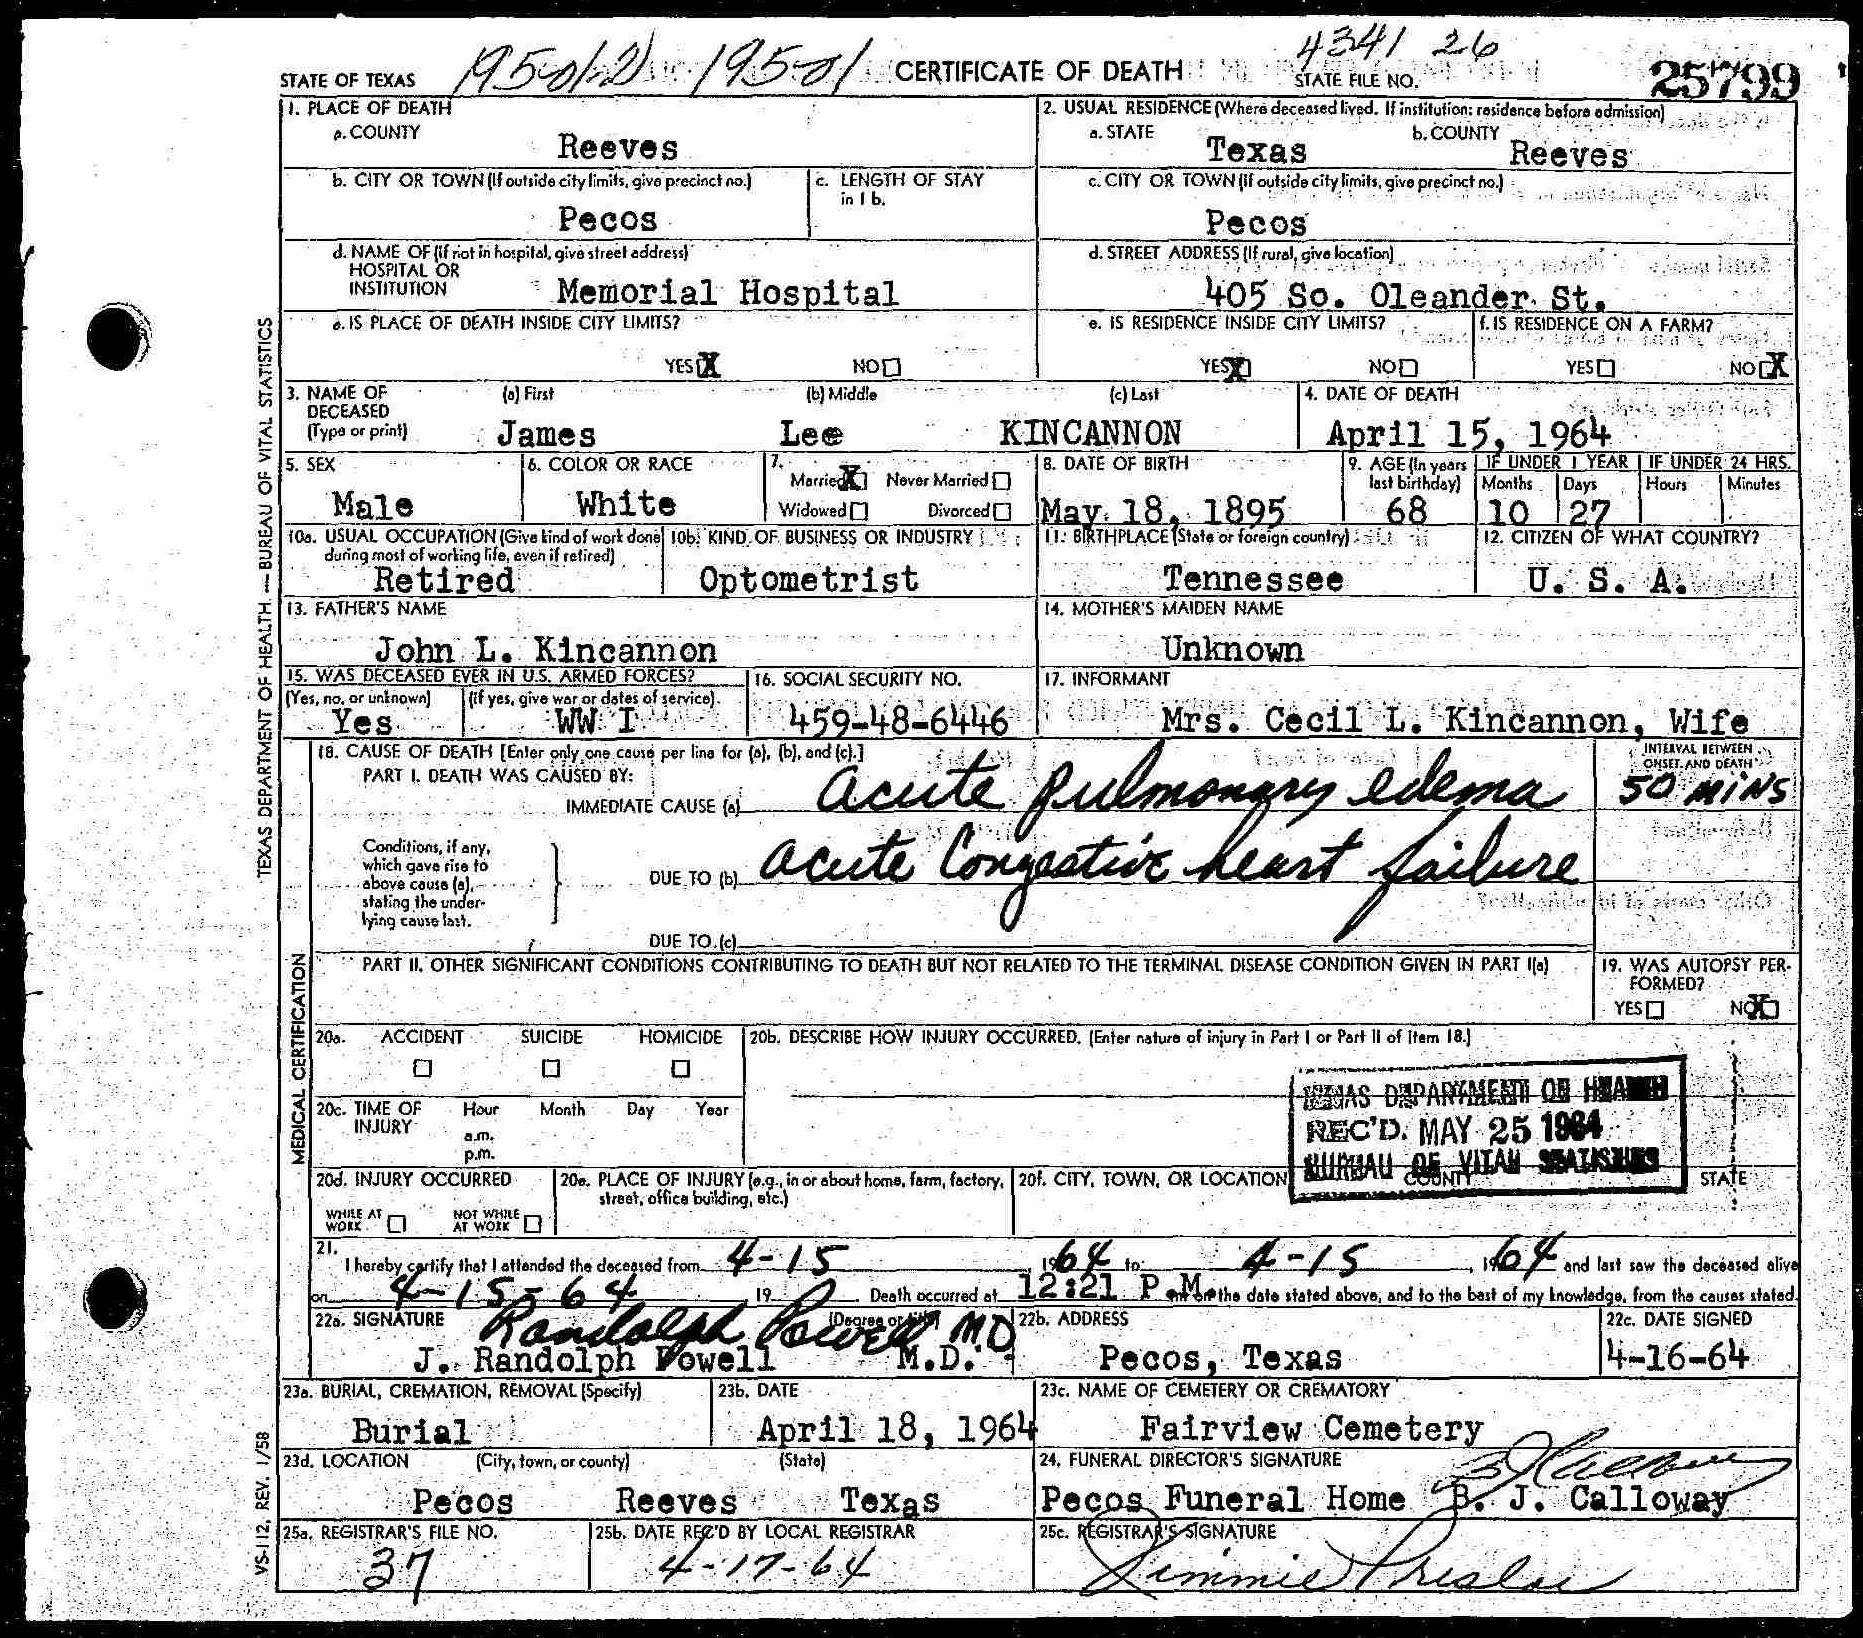 4341 26
STATE OF TEXAS 1950 CERTIFICATE OF DEATH STATE FILE NO. 25799
1. PLACE OF DEATH
a. COUNTY
Reeves
2. USUAL RESIDENCE (Where deceased lived. If institution: residence before admission)
a. STATE b. COUNTY
Texas Reeves
b. CITY OR TOWN (If outside city limits, give precinct no.)
Pecos
c. LENGTH OF STAY
in 1 b.
c. CITY OR TOWN (If outside city limits, give precinct no.)
Pecos
d. NAME OF (If not in hospital, give street address)
HOSPITAL OR
INSTITUTION
Memorial Hospital
d. STREET ADDRESS (If rural, give location)
405 So. Oleander St.
e. IS PLACE OF DEATH INSIDE CITY LIMITS?
YES X NO
e. IS RESIDENCE INSIDE CITY LIMITS?
YES X NO
f. IS RESIDENCE ON A FARM?
YES NO X
3. NAME OF
DECEASED
(Type or print)
(a) First (b) Middle (c) Last
James Lee KINCANNON
4. DATE OF DEATH
April 15, 1964
5. SEX
Male
6. COLOR OR RACE
White
7.
Married X Never Married
Widowed Divorced
8. DATE OF BIRTH
May 18, 1895
9. AGE (In years
last birthday)
68
IF UNDER 1 YEAR
Months Days
10 27
IF UNDER 24 HRS.
Hours Minutes
10a. USUAL OCCUPATION (Give kind of work done
during most of working life, even if retired)
Retired
10b. KIND OF BUSINESS OR INDUSTRY
Optometrist
11. BIRTHPLACE (State or foreign country)
Tennessee
12. CITIZEN OF WHAT COUNTRY?
U. S. A.
13. FATHER'S NAME
John L. Kincannon
14. MOTHER'S MAIDEN NAME
Unknown
15. WAS DECEASED EVER IN U.S. ARMED FORCES?
(Yes, no, or unknown) (If yes, give war or dates of service)
Yes WW I
16. SOCIAL SECURITY NO.
459-48-6446
17. INFORMANT
Mrs. Cecil L. Kincannon, Wife
18. CAUSE OF DEATH [Enter only one cause per line for (a), (b), and (c).]
PART I. DEATH WAS CAUSED BY:
IMMEDIATE CAUSE (a) acute pulmonary edema
INTERVAL BETWEEN
ONSET AND DEATH
50 MINS
Conditions, if any,
which gave rise to
above cause (a),
stating the under-
lying cause last.
DUE TO (b) acute Congestive heart failure
DUE TO (c)
PART II. OTHER SIGNIFICANT CONDITIONS CONTRIBUTING TO DEATH BUT NOT RELATED TO THE TERMINAL DISEASE CONDITION GIVEN IN PART I(a)
19. WAS AUTOPSY PER-
FORMED?
YES NO X
20a. ACCIDENT SUICIDE HOMICIDE
20b. DESCRIBE HOW INJURY OCCURRED. (Enter nature of injury in Part I or Part II of Item 18.)
20c. TIME OF
INJURY
Hour Month Day Year
a.m.
p.m.
TEXAS DEPARTMENT OF HEALTH
REC'D. MAY 25 1964
BUREAU OF VITAL STATISTICS
20d. INJURY OCCURRED
WHILE AT
WORK
NOT WHILE
AT WORK
20e. PLACE OF INJURY (e.g., in or about home, farm, factory,
street, office building, etc.)
20f. CITY, TOWN, OR LOCATION COUNTY STATE
21.
I hereby certify that I attended the deceased from 4-15, 1964 to 4-15, 1964 and last saw the deceased alive
on 4-15-64, 19 . Death occurred at 12:21 P.M. on the date stated above, and to the best of my knowledge, from the causes stated.
22a. SIGNATURE (Degree or title)
Randolph Powell MD
J. Randolph Powell M.D.
22b. ADDRESS
Pecos, Texas
22c. DATE SIGNED
4-16-64
23a. BURIAL, CREMATION, REMOVAL (Specify)
Burial
23b. DATE
April 18, 1964
23c. NAME OF CEMETERY OR CREMATORY
Fairview Cemetery
23d. LOCATION (City, town, or county) (State)
Pecos Reeves Texas
24. FUNERAL DIRECTOR'S SIGNATURE
B J Calloway
Pecos Funeral Home B. J. Calloway
25a. REGISTRAR'S FILE NO.
37
25b. DATE REC'D BY LOCAL REGISTRAR
4-17-64
25c. REGISTRAR'S SIGNATURE
Jimmie
TEXAS DEPARTMENT OF HEALTH — BUREAU OF VITAL STATISTICS
MEDICAL CERTIFICATION
VS-112, REV. 1/58